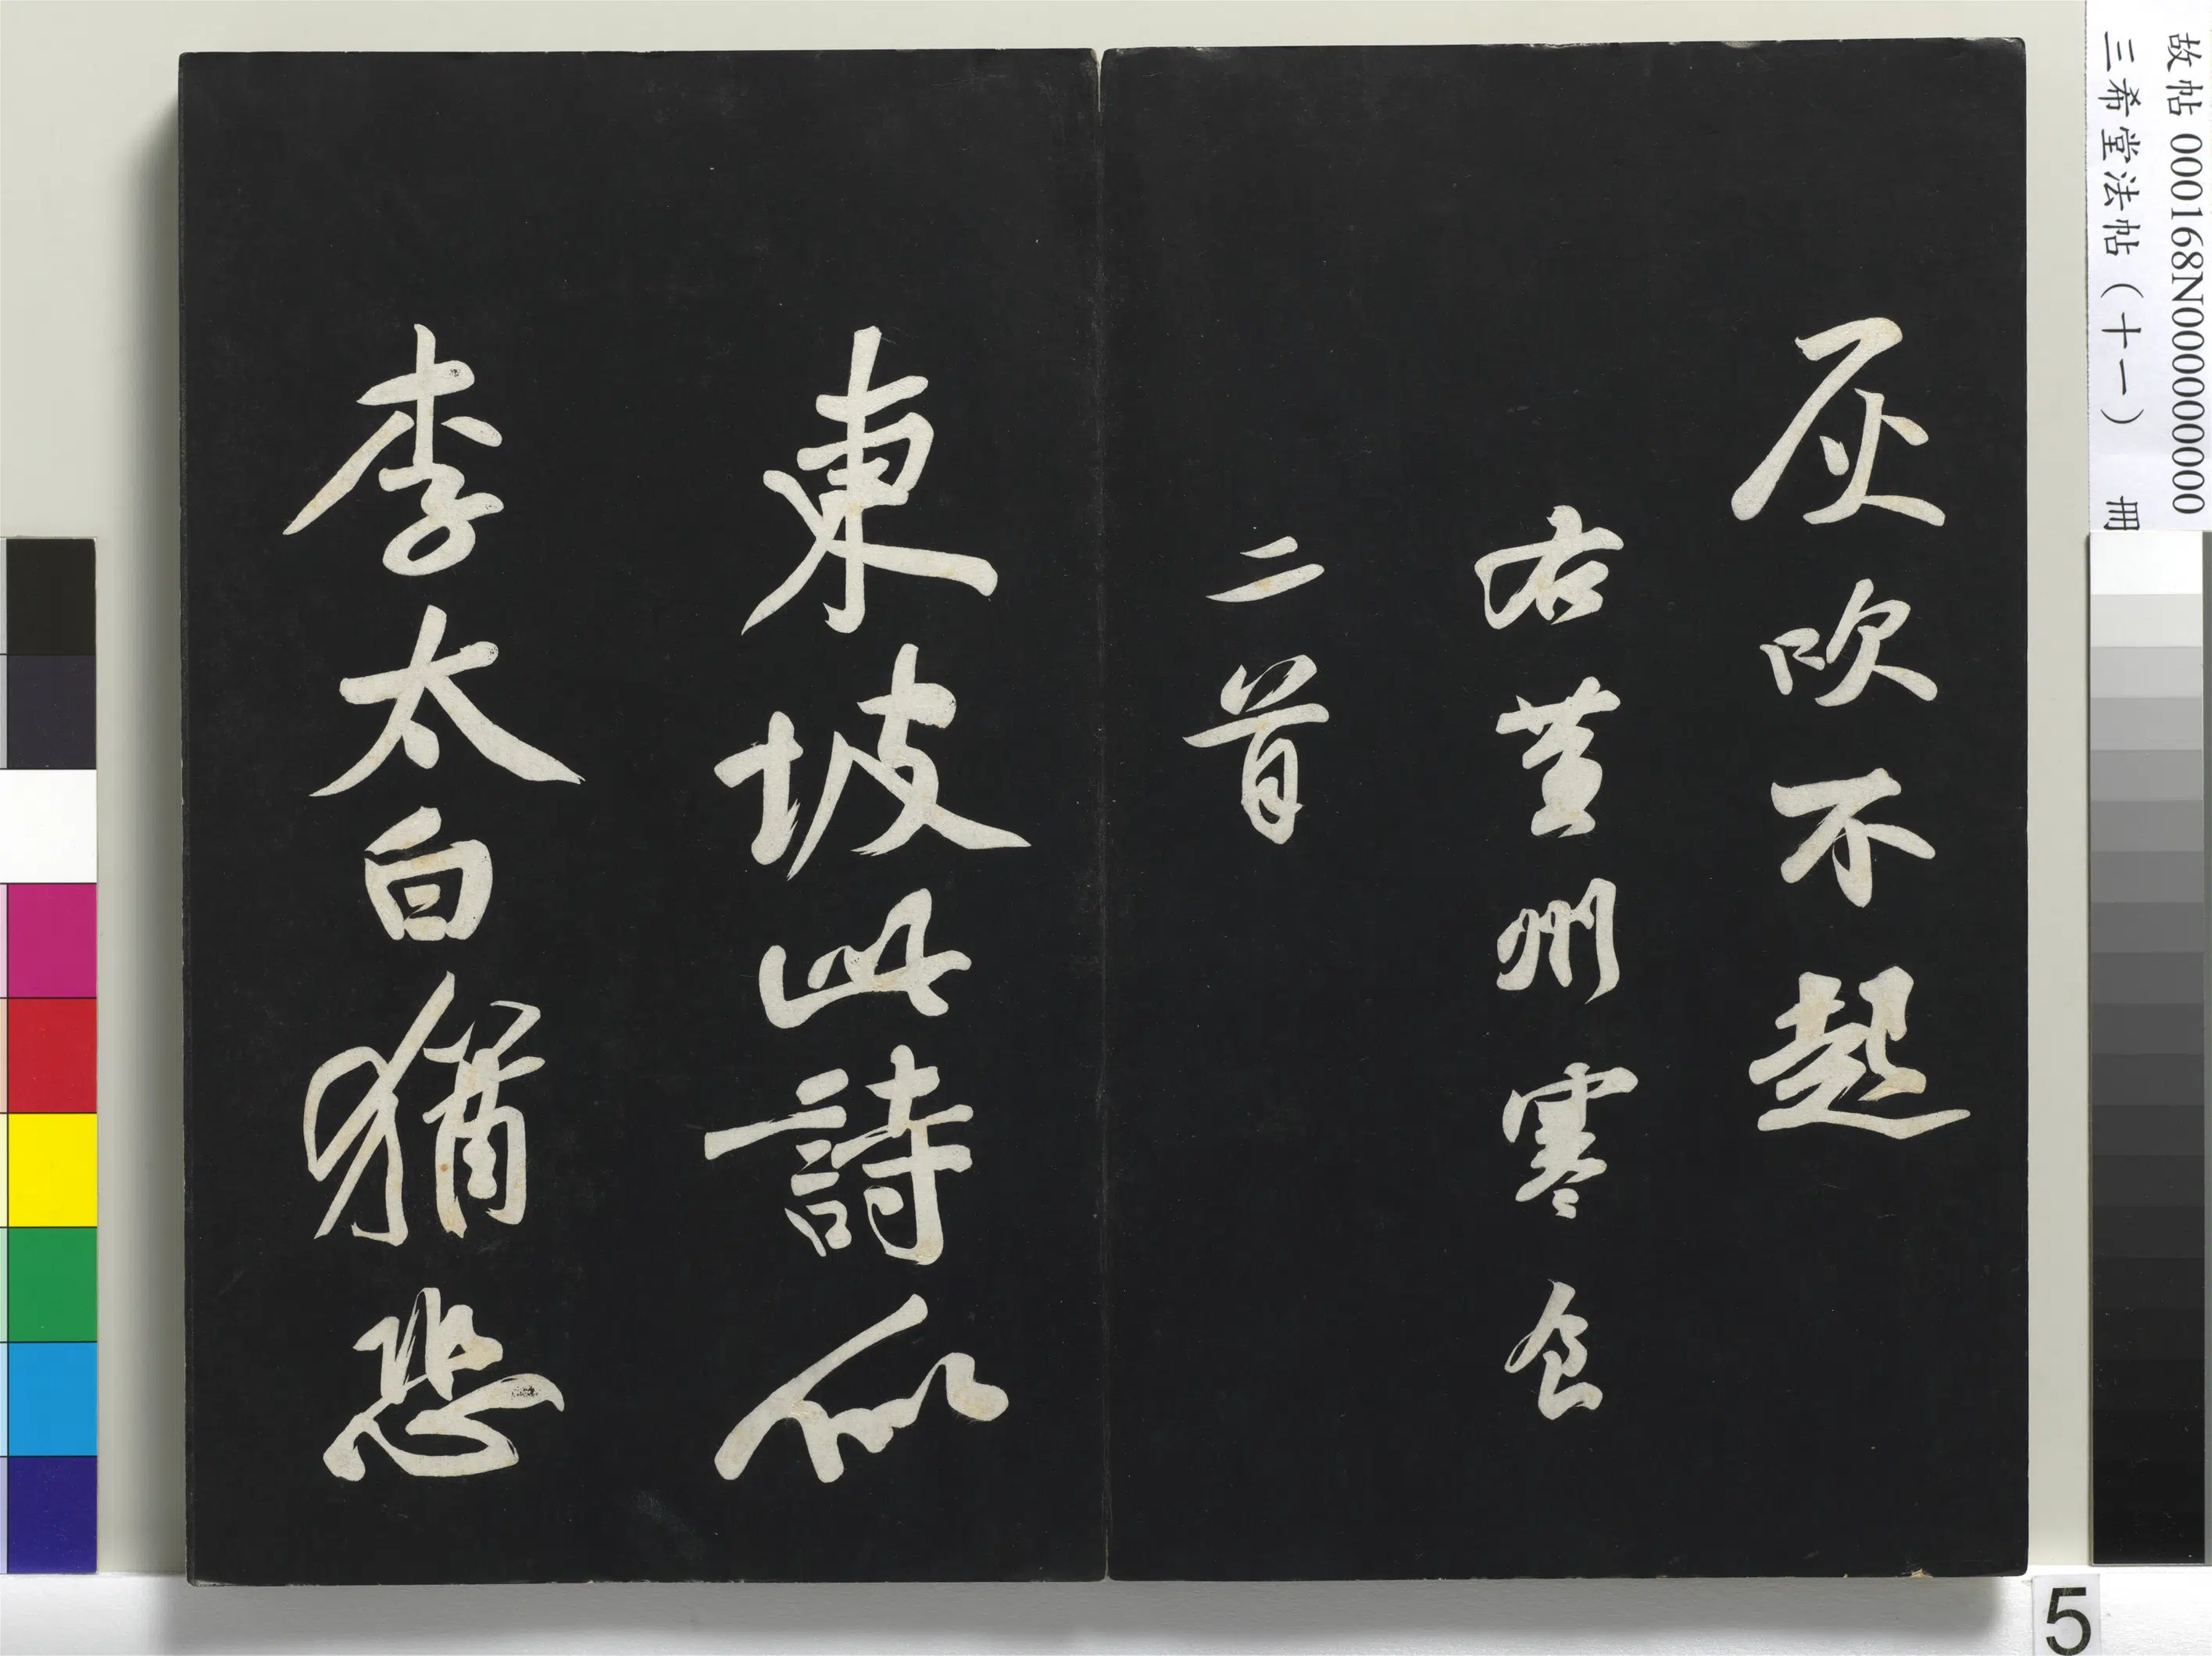 故帖 000168N000000000
三希堂法帖（十一） 冊
灰吹不起
右黃州寒食
二首
東坡此詩似
李太白猶恐
5